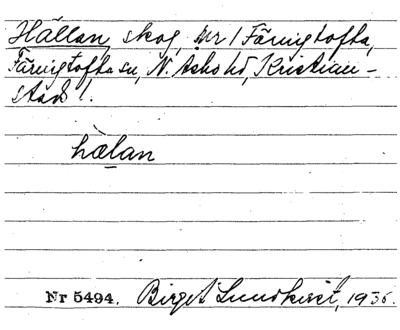 Hällan, skog, nr 1 Färingtofta,
Färingtofta sn, N. Åsbo hd, Kristian-
stads l.
hælan
Nr 5494. Birget Lundkvist, 1936.